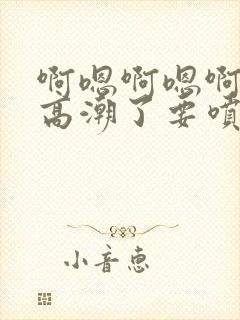 啊嗯啊嗯啊
高潮了要喷
小音惠